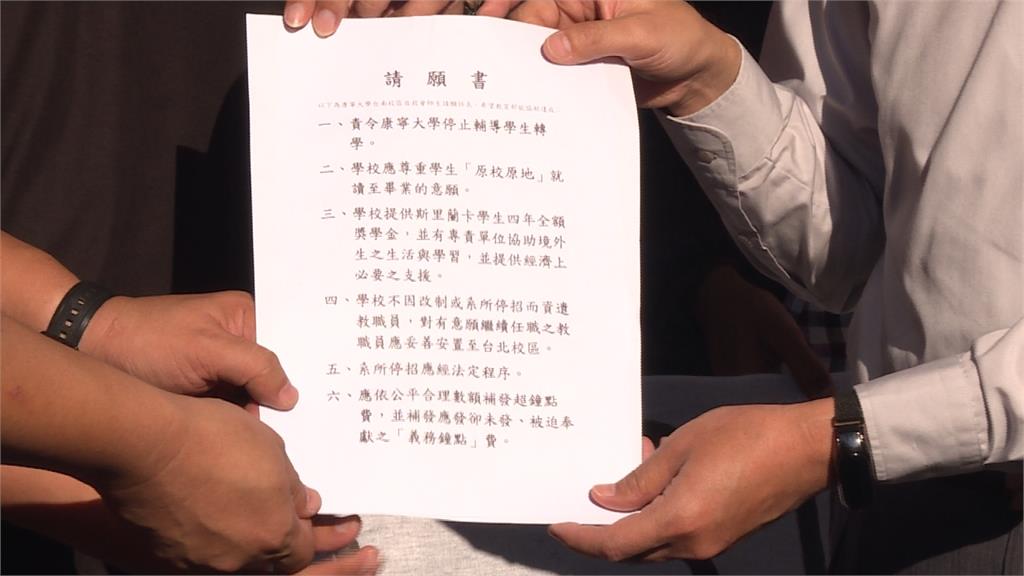 請願書
以下為康寧大學台南校區自救會師生請願訴求，希望教育部能協助達成：
一、責令康寧大學停止輔導學生轉
學。
二、學校應尊重學生「原校原地」就
讀至畢業的意願。
三、學校提供斯里蘭卡學生四年全額
獎學金，並有專責單位協助境外
生之生活與學習，並提供經濟上
必要之支援。
四、學校不因改制或系所停招而資遣
教職員，對有意願繼續任職之教
職員應妥善安置至台北校區。
五、系所停招應經法定程序。
六、應依公平合理數額補發超鐘點
費，並補發應發卻未發、被迫奉
獻之「義務鐘點」費。